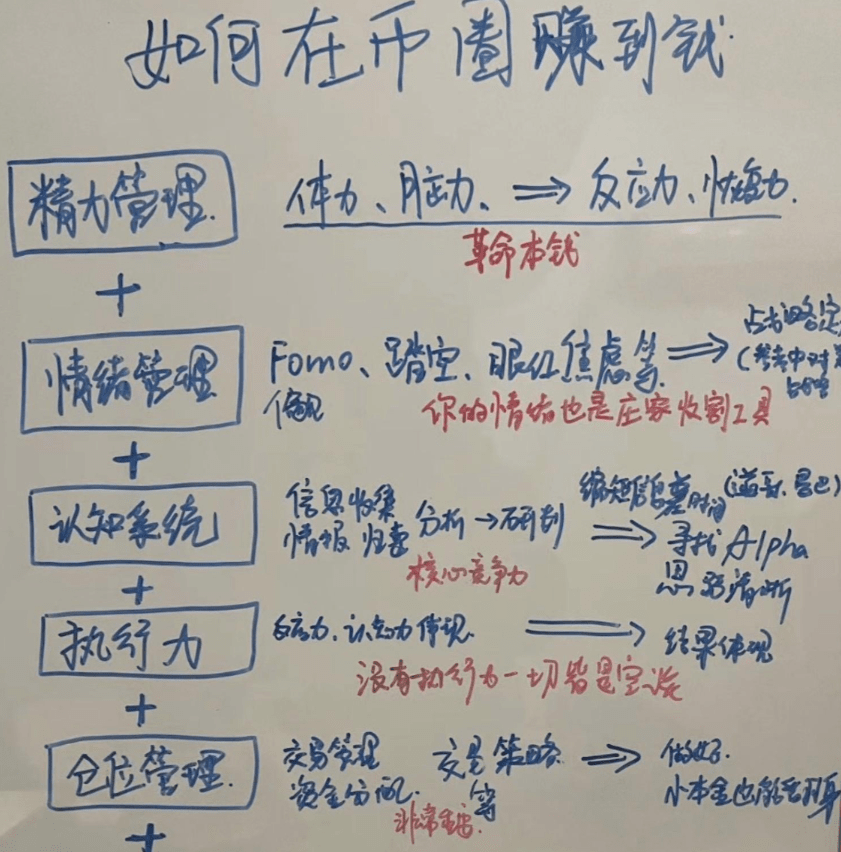 如何在币圈赚到钱.
精力管理. 体力、脑力、⇒ 反应力、恢复力.
革命本钱
+
情绪管理 Fomo、踏空、眼红焦虑等. ⇒
偏见
你的情绪也是庄家收割工具
+
认知系统
信息收集
情报 归纳 分析→研判 ⇒ 寻找Alpha
缩短信息差时间
核心竞争力
思路清晰
+
执行力 反应力、认知力体现. ⇒ 结果体现
没有执行力一切皆是空谈
+
仓位管理. 交易管理 交易策略 ⇒ 做好.
资金分配. 等 小本金也能翻身
非常重要.
+